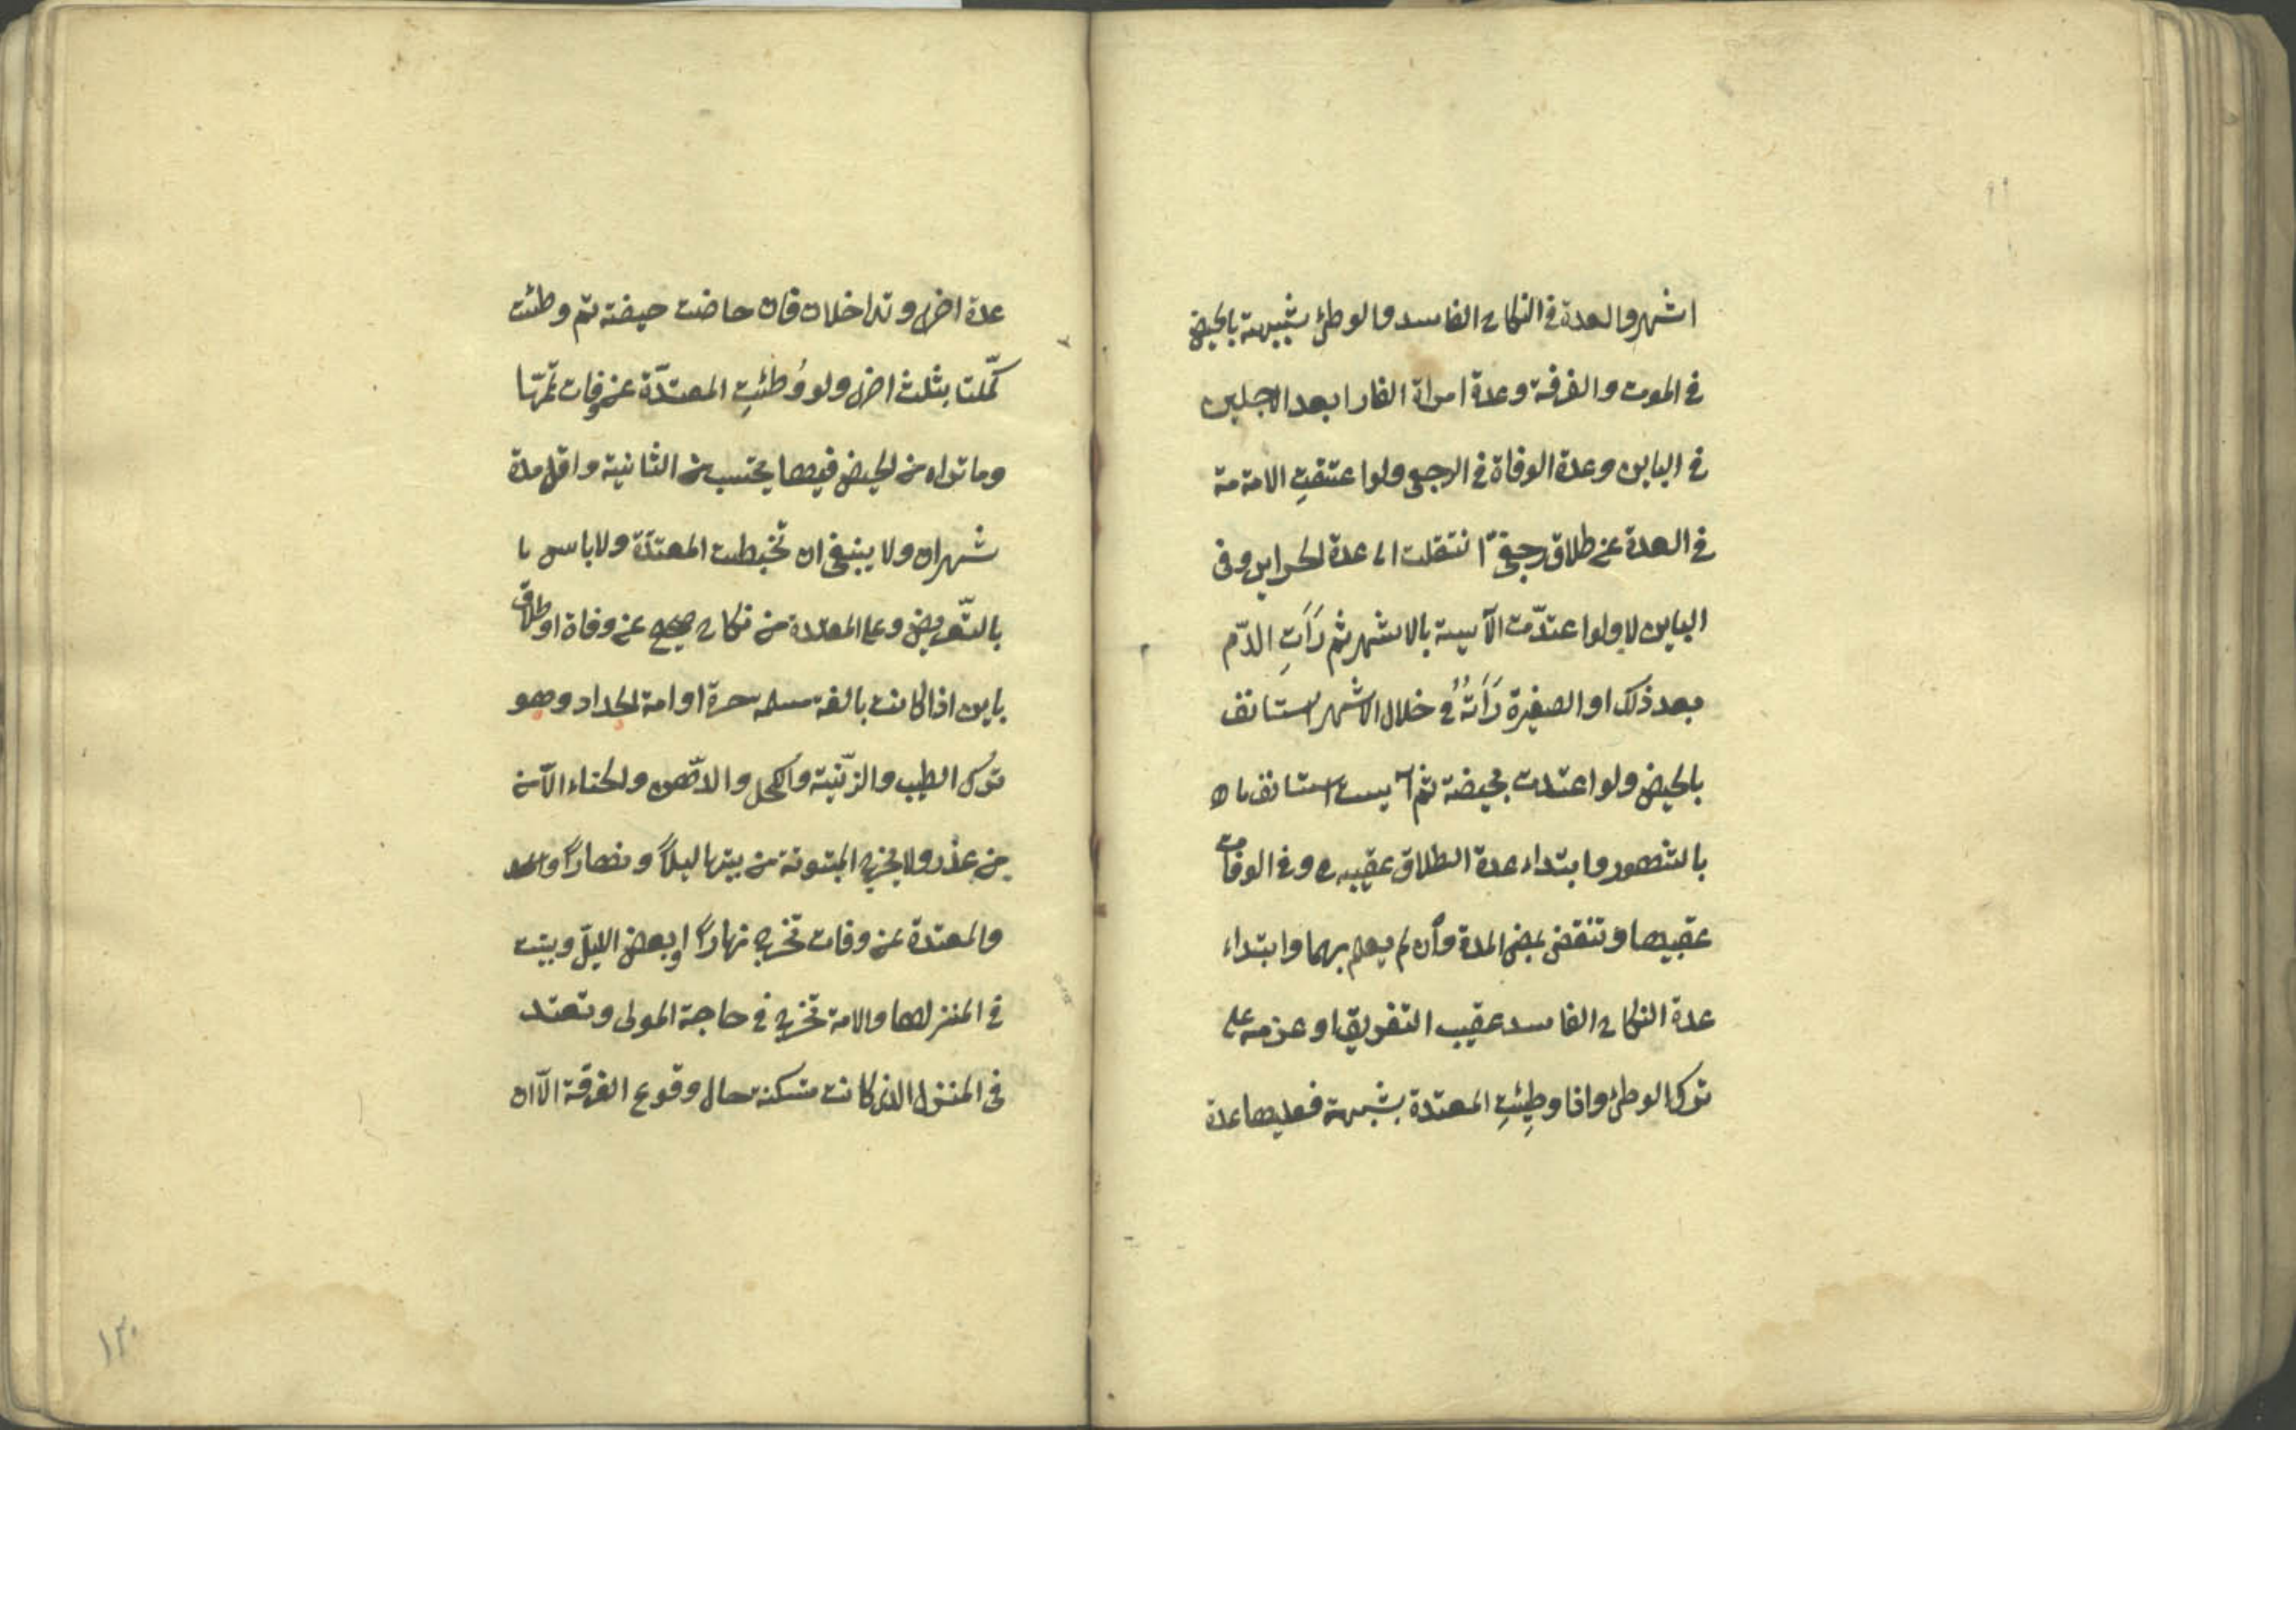 اشهر والعدة في النكاح الفاسد والوطئ بشبهة بالحيض
في الموت والفرقة وعدة امراة الفار ابعد الاجلين
في الباين وعدة الوفاة في الرجعي ولو اعتقت الامة
في العدة عن طلاق رجعيّ انتقلت الى عدة الحراير وفى
الباين لا ولو اعتدّت الآيسة بالاشهر ثم رَأَتِ الدّم
بعد ذلك او الصغيرة رَأَتْهُ في خلال الاشهر استانف
بالحيض ولو اعتدت بحيضة ثم آيست استانف
بالشهور وابتداء عدة الطلاق عقيبه وفي الوفات
عقيبها وتنقضي بمضي المدة وان لم يعلم بهما وابتداء
عدة النكاح الفاسد عقيب التفريق او عزمه على
ترك الوطئ واذا وطِئتِ المعتدة بشبهة فعليها عدة
عدة اخرى وتداخلان فان حاضت حيضة ثم وطئت
كمّلتا بثلث اخرى ولو وُطئتِ المعتدّة عن وفات تمّتها
وما تراه من الحيض فيها يحتسب من الثانية واقل مدة
شهران ولا ينبغي ان تخطبت المعتدّة ولا باس
بالتّعريض وعلى المعتدة من نكاح صحيح عن وفاة او طلاق
باين اذا كانت بالغة مسلمة حرة او امة الحداد وهو
ترك الطيب والزّينة والكحل والدّهن والحناء الآمن
من عذر ولا يخرج المبتوتة من بيتها ليلاً ونهاراً
والمعتدة عن وفات تخرج نهاراً وبعض الليل وبيت
في المنزلها والامة تخرج في حاجة المولى وتعتد
في المنزل الذي كانت تسكنه حال وقوع الفرقة الآان
١٣٠